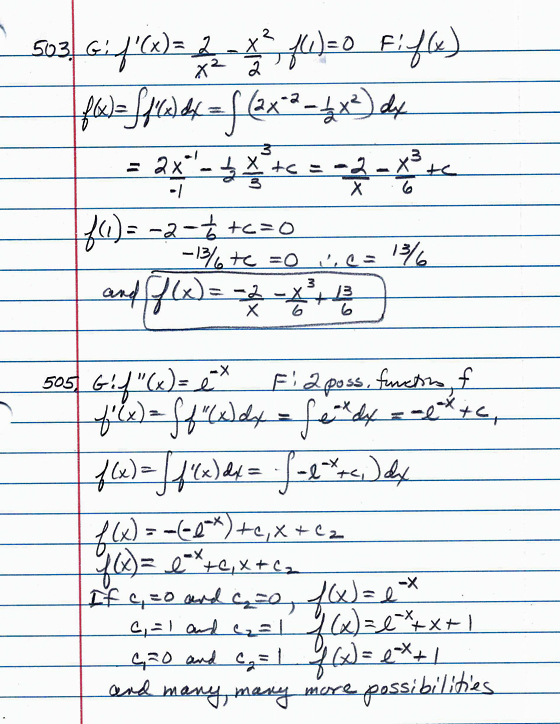 503. G: f'(x) = 2/x² - x²/2, f(1) = 0 F: f(x)
f(x) = ∫f'(x)dx = ∫(2x⁻² - ½x²)dx
= 2x⁻¹/-1 - ½ x³/3 + c = -2/x - x³/6 + c
f(1) = -2 - 1/6 + c = 0
-13/6 + c = 0 ∴ c = 13/6
and f(x) = -2/x - x³/6 + 13/6
505. G: f"(x) = e⁻ˣ F: 2 poss. functions, f
f'(x) = ∫f"(x)dx = ∫e⁻ˣdx = -e⁻ˣ + c₁
f(x) = ∫f'(x)dx = ∫-e⁻ˣ + c₁)dx
f(x) = -(-e⁻ˣ) + c₁x + c₂
f(x) = e⁻ˣ + c₁x + c₂
If c₁ = 0 and c₂ = 0, f(x) = e⁻ˣ
c₁ = 1 and c₂ = 1 f(x) = e⁻ˣ + x + 1
c₁ = 0 and c₂ = 1 f(x) = e⁻ˣ + 1
and many, many more possibilities